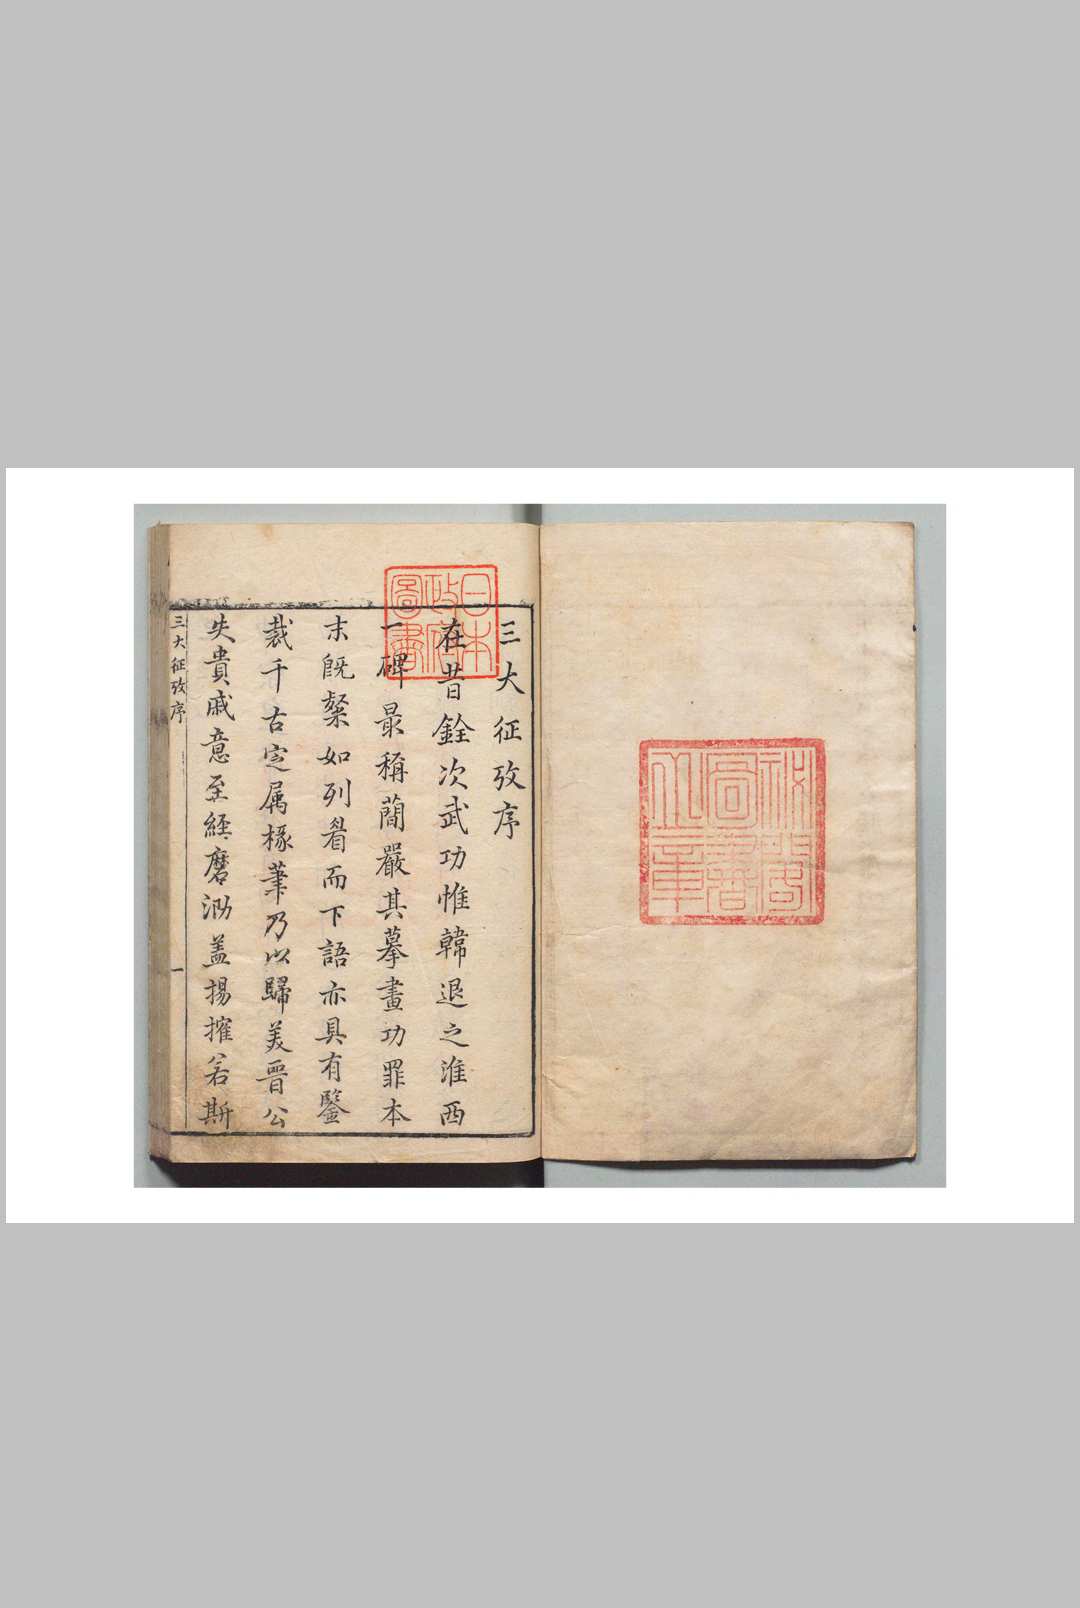 秘閣
圖書
之章
日本
政府
圖書
三大征攷序
在昔銓次武功惟韓退之淮西
一碑最稱簡嚴其摹畫功罪本
末旣粲如列眉而下語亦具有鑒
裁千古定属椽筆乃以歸美晉公
失貴戚意至經磨泐盖揚搉若斯
三大征攷序 一